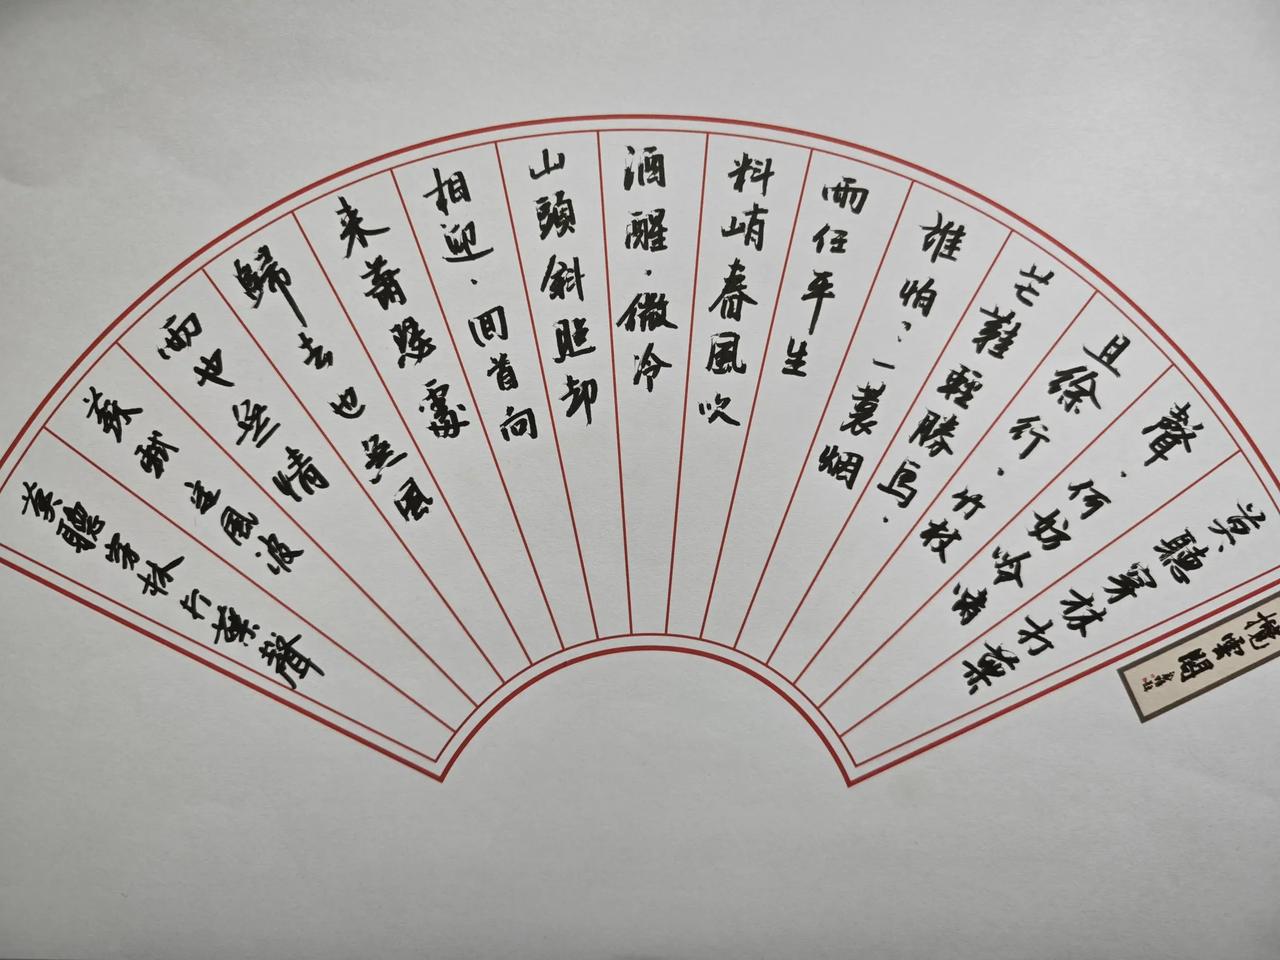 莫聽穿林打葉
聲．何妨吟嘯
且徐行．竹枝
芒鞋輕勝馬．
誰怕：一蓑烟
雨任平生
料峭春風吹
酒醒．微冷
山頭斜照却
相迎．回首向
来蕭瑟處
歸去也無風
雨也無情
蘇軾定風波
莫聽穿林打葉聲
雲閣